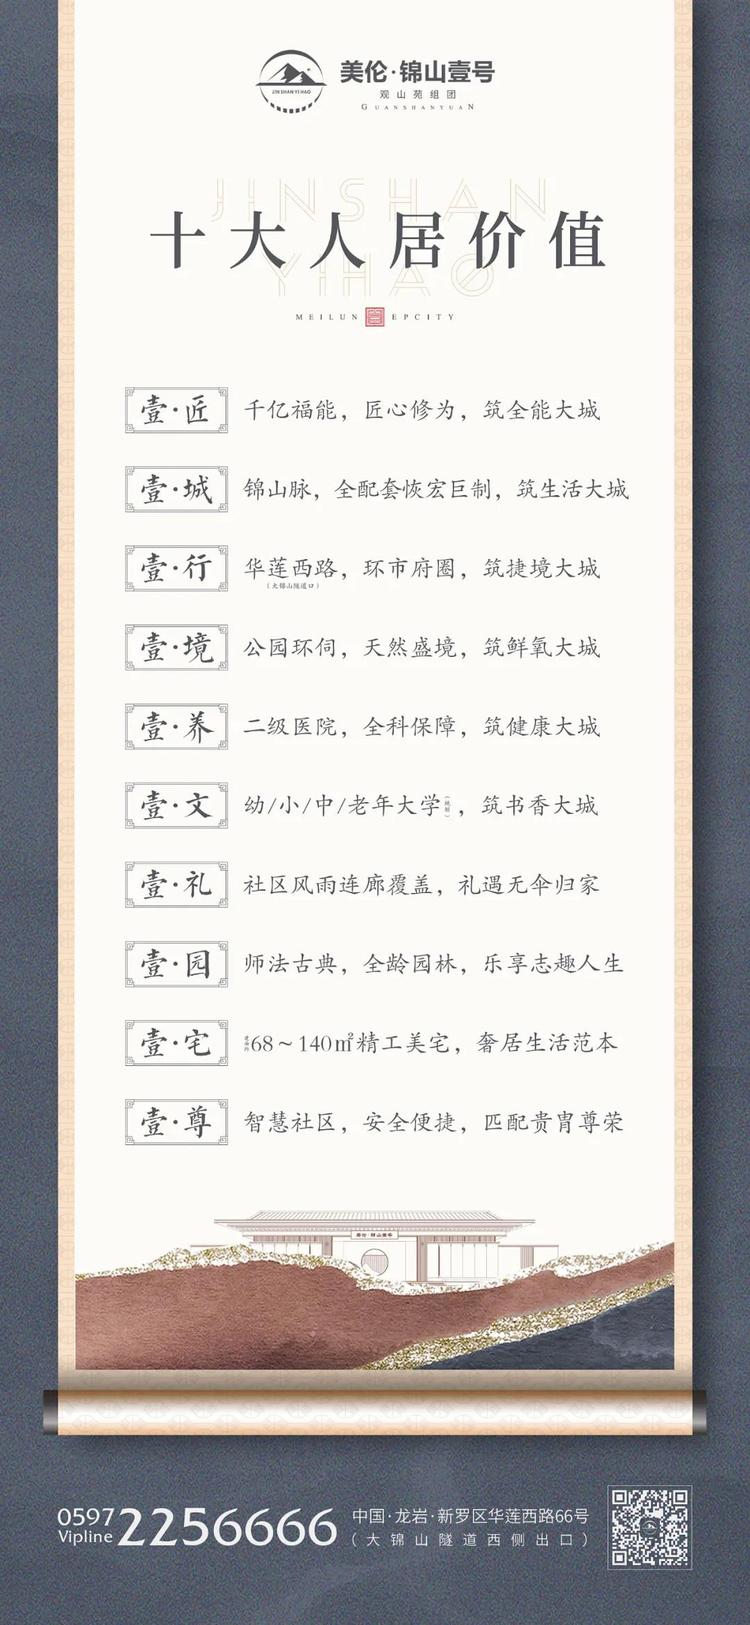 美伦·锦山壹号
JIN SHAN YI HAO
观山苑组团
GUANSHANYUAN
JINSHAN
十大人居价值
YIHAO
MEILUN EPCITY
壹·匠 千亿福能，匠心修为，筑全能大城
壹·城 锦山脉，全配套恢宏巨制，筑生活大城
壹·行 华莲西路，环市府圈，筑捷境大城
（大锦山隧道口）
壹·境 公园环伺，天然盛境，筑鲜氧大城
壹·养 二级医院，全科保障，筑健康大城
壹·文 幼/小/中/老年大学，筑书香大城
壹·礼 社区风雨连廊覆盖，礼遇无伞归家
壹·园 师法古典，全龄园林，乐享志趣人生
壹·宅 68～140㎡精工美宅，奢居生活范本
壹·尊 智慧社区，安全便捷，匹配贵胄尊荣
美伦·锦山壹号
0597 2256666
Vipline
中国·龙岩·新罗区华莲西路66号
（大锦山隧道西侧出口）